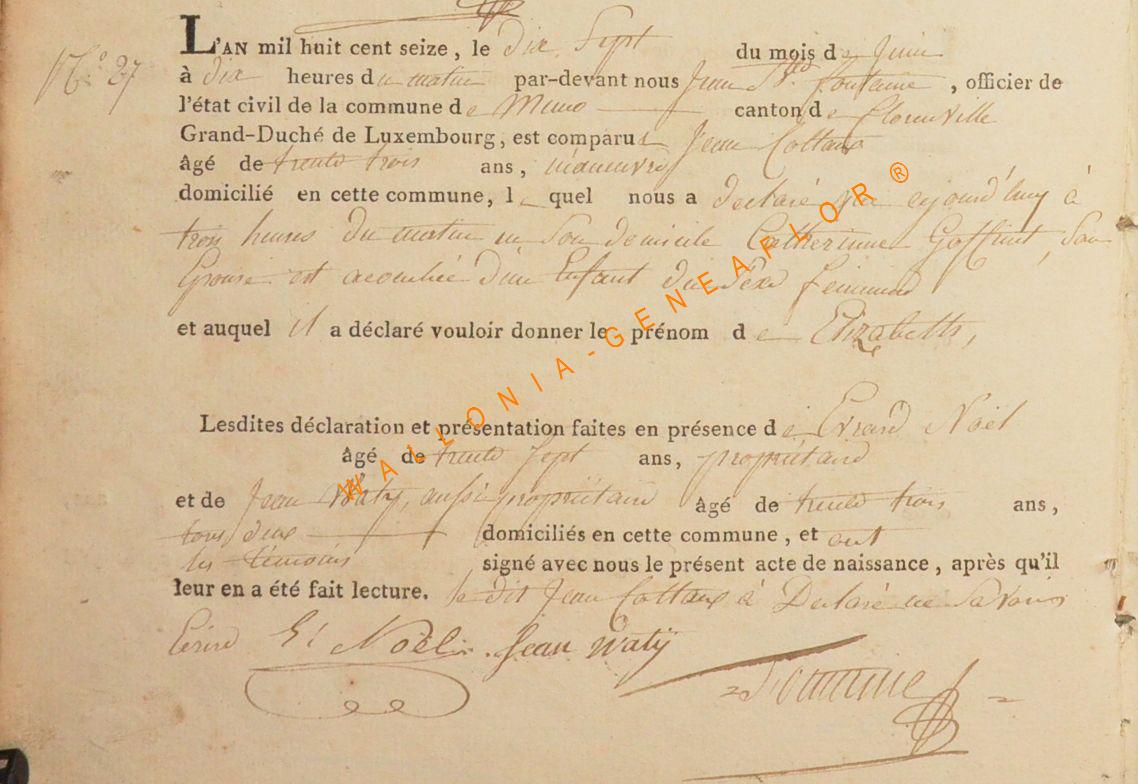 N.° 27
L'AN mil huit cent seize, le Dix Sept du mois de Juin
à dix heures du matin par-devant nous Jean Bte. fontaine, officier de
l'état civil de la commune de Muno canton de florenville
Grand-Duché de Luxembourg, est comparu Jean Cottaux
âgé de trente trois ans, manœuvre
domicilié en cette commune, le quel nous a declaré que ajourd'huy à
trois heures du matin en Son domicile Catherinne Goffinet, Son
Epouse est acouchée d'un Enfant du Séxe feminin
et auquel il a déclaré vouloir donner le prénom de Elizabeth,
Lesdites déclaration et présentation faites en présence de Evrard Noël
âgé de trente Sept ans, propriétaire
et de Jean Waty, aussi propriétaire âgé de trente trois ans,
tous deux domiciliés en cette commune, et ont
les témoins signé avec nous le présent acte de naissance, après qu'il
leur en a été fait lecture. le dit Jean Cottaux à Declaré ne Savoir
Ecrire E: Noël. Jean Waty
fontaine
WALLONIA-GENEAFLOR®